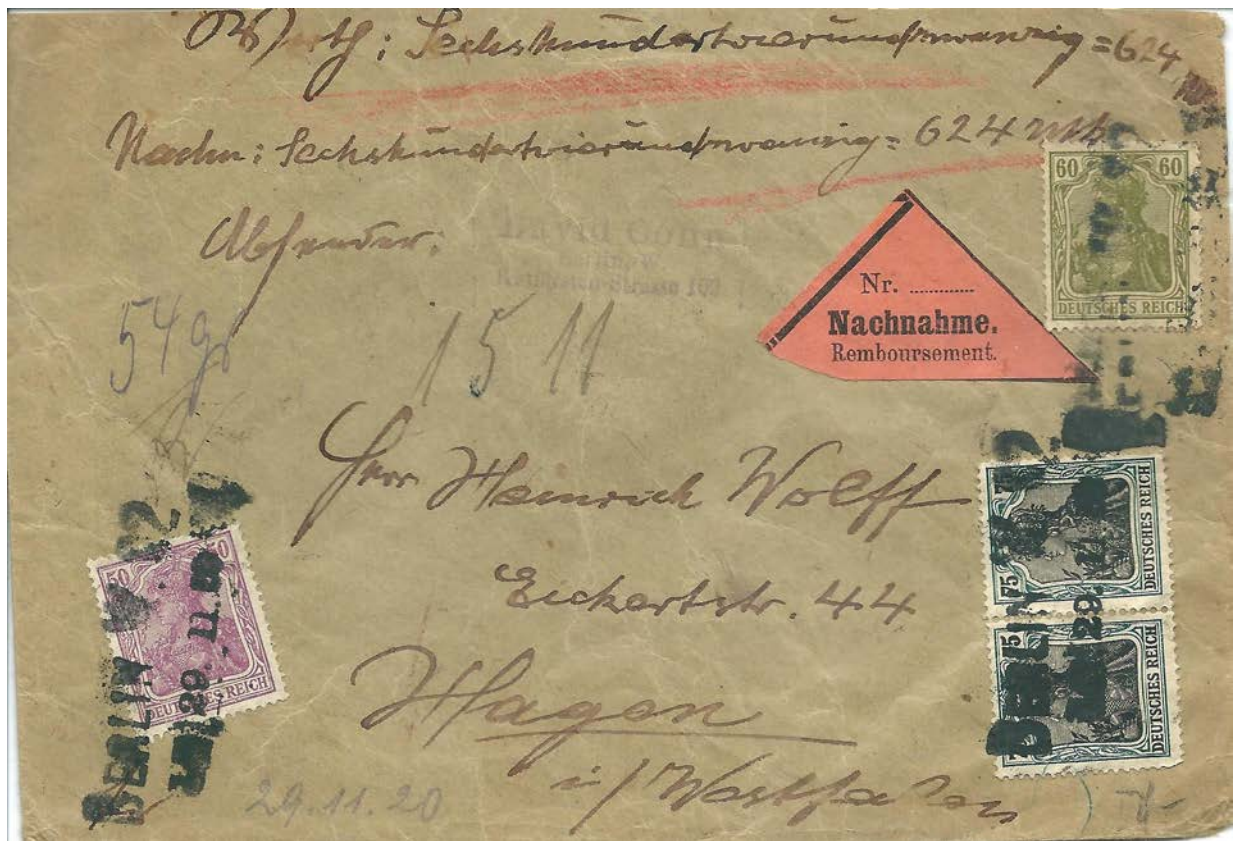 Werth: Sechshundertvierundzwanzig = 624
Nachn: Sechshundertvierundzwanzig = 624 Mk
Absender:
David Cohn
Berlin W
Strasse
54 gr
15 11
Nr. ............
Nachnahme.
Remboursement.
60 60
DEUTSCHES REICH
Herr Heinrich Wolff
Eickertstr. 44
Hagen
i/ Westfalen
75
DEUTSCHES REICH
75
DEUTSCHES REICH
BERLIN W
29. 11.
50 50
DEUTSCHES REICH
BERLIN W
29. 11.
29.11.20